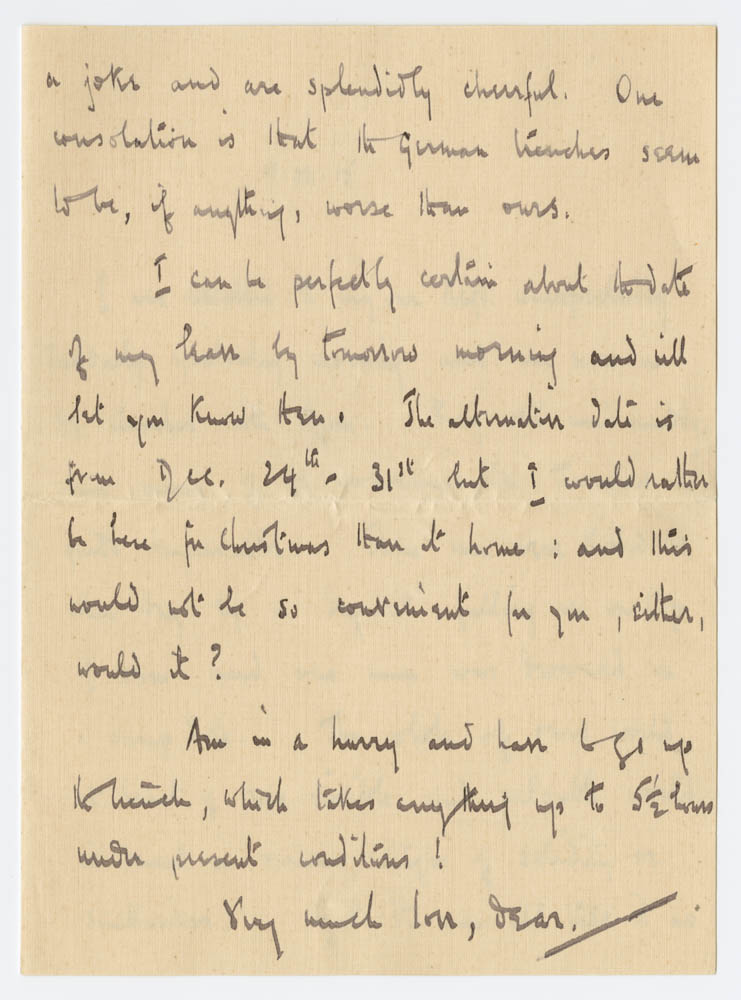 a joke and are splendidly cheerful. One
consolation is that the German trenches seem
to be, if anything, worse than ours.
I can be perfectly certain about the date
of my leave by tomorrow morning and will
let you know then. The alternative date is
from Dec. 24th - 31st but I would rather
be here for Christmas than at home : and this
would not be so convenient for you, either,
would it?
Am in a hurry and have to go up
the trench, which takes anything up to 5½ hours
under present conditions!
Very much love, dear.